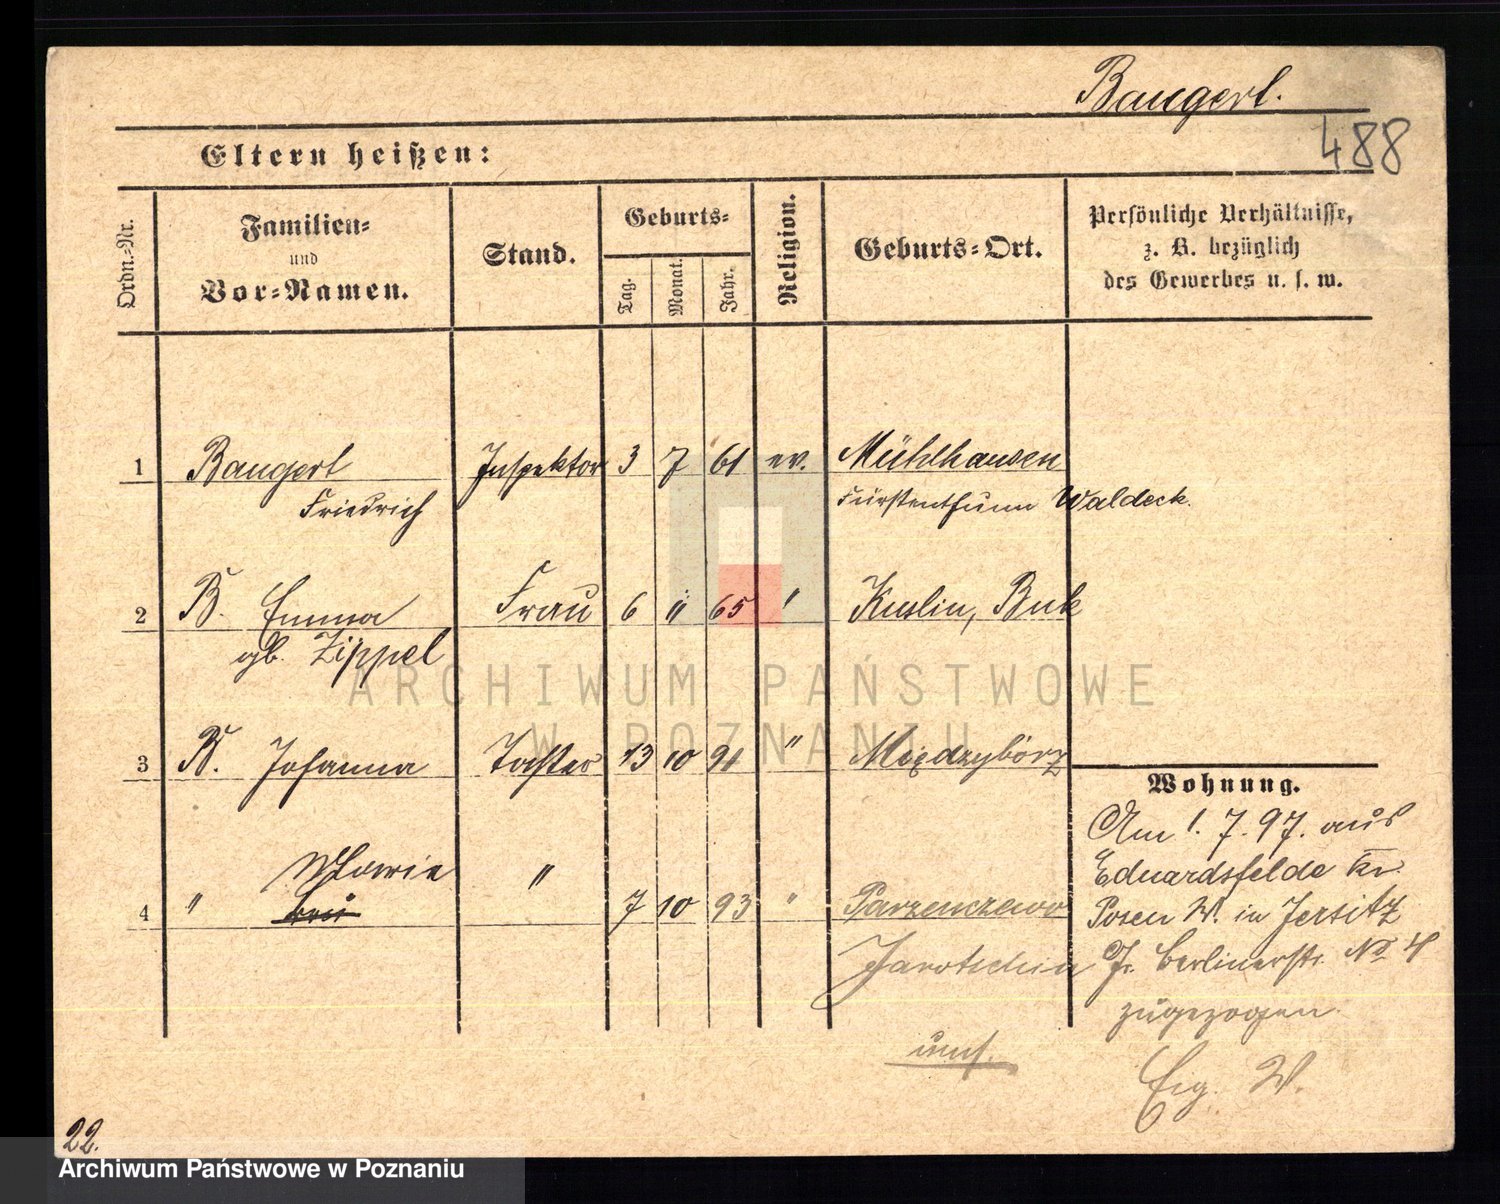 Baugert.
488
Eltern heißen:
Ordn.-Nr.
Familien- und Vor-Namen.
Stand.
Geburts-
Tag.
Monat.
Jahr.
Religion.
Geburts-Ort.
Persönliche Verhältnisse,
z. B. bezüglich
des Gewerbes u. s. w.
1 Baugert Inspektor 3 7 61 ev. Mühlhausen
Friedrich Fürstenthum Waldeck.
2 B. Emma Frau 6 11 65 " Kuslin, Buk
gb. Zippel
3 B. Johanna Tochter 13 10 91 " Międzybórz
4 " Marie " 7 10 93 " Parzenczewo
Jarotschin
Wohnung.
Am 1. 7. 97. aus
Eduardsfelde Kr.
Posen W. in Jersitz
Gr. Berlinerstr. No 4
zugezogen.
Eig. W.
22.
ARCHIWUM PAŃSTWOWE
W POZNANIU
Archiwum Państwowe w Poznaniu